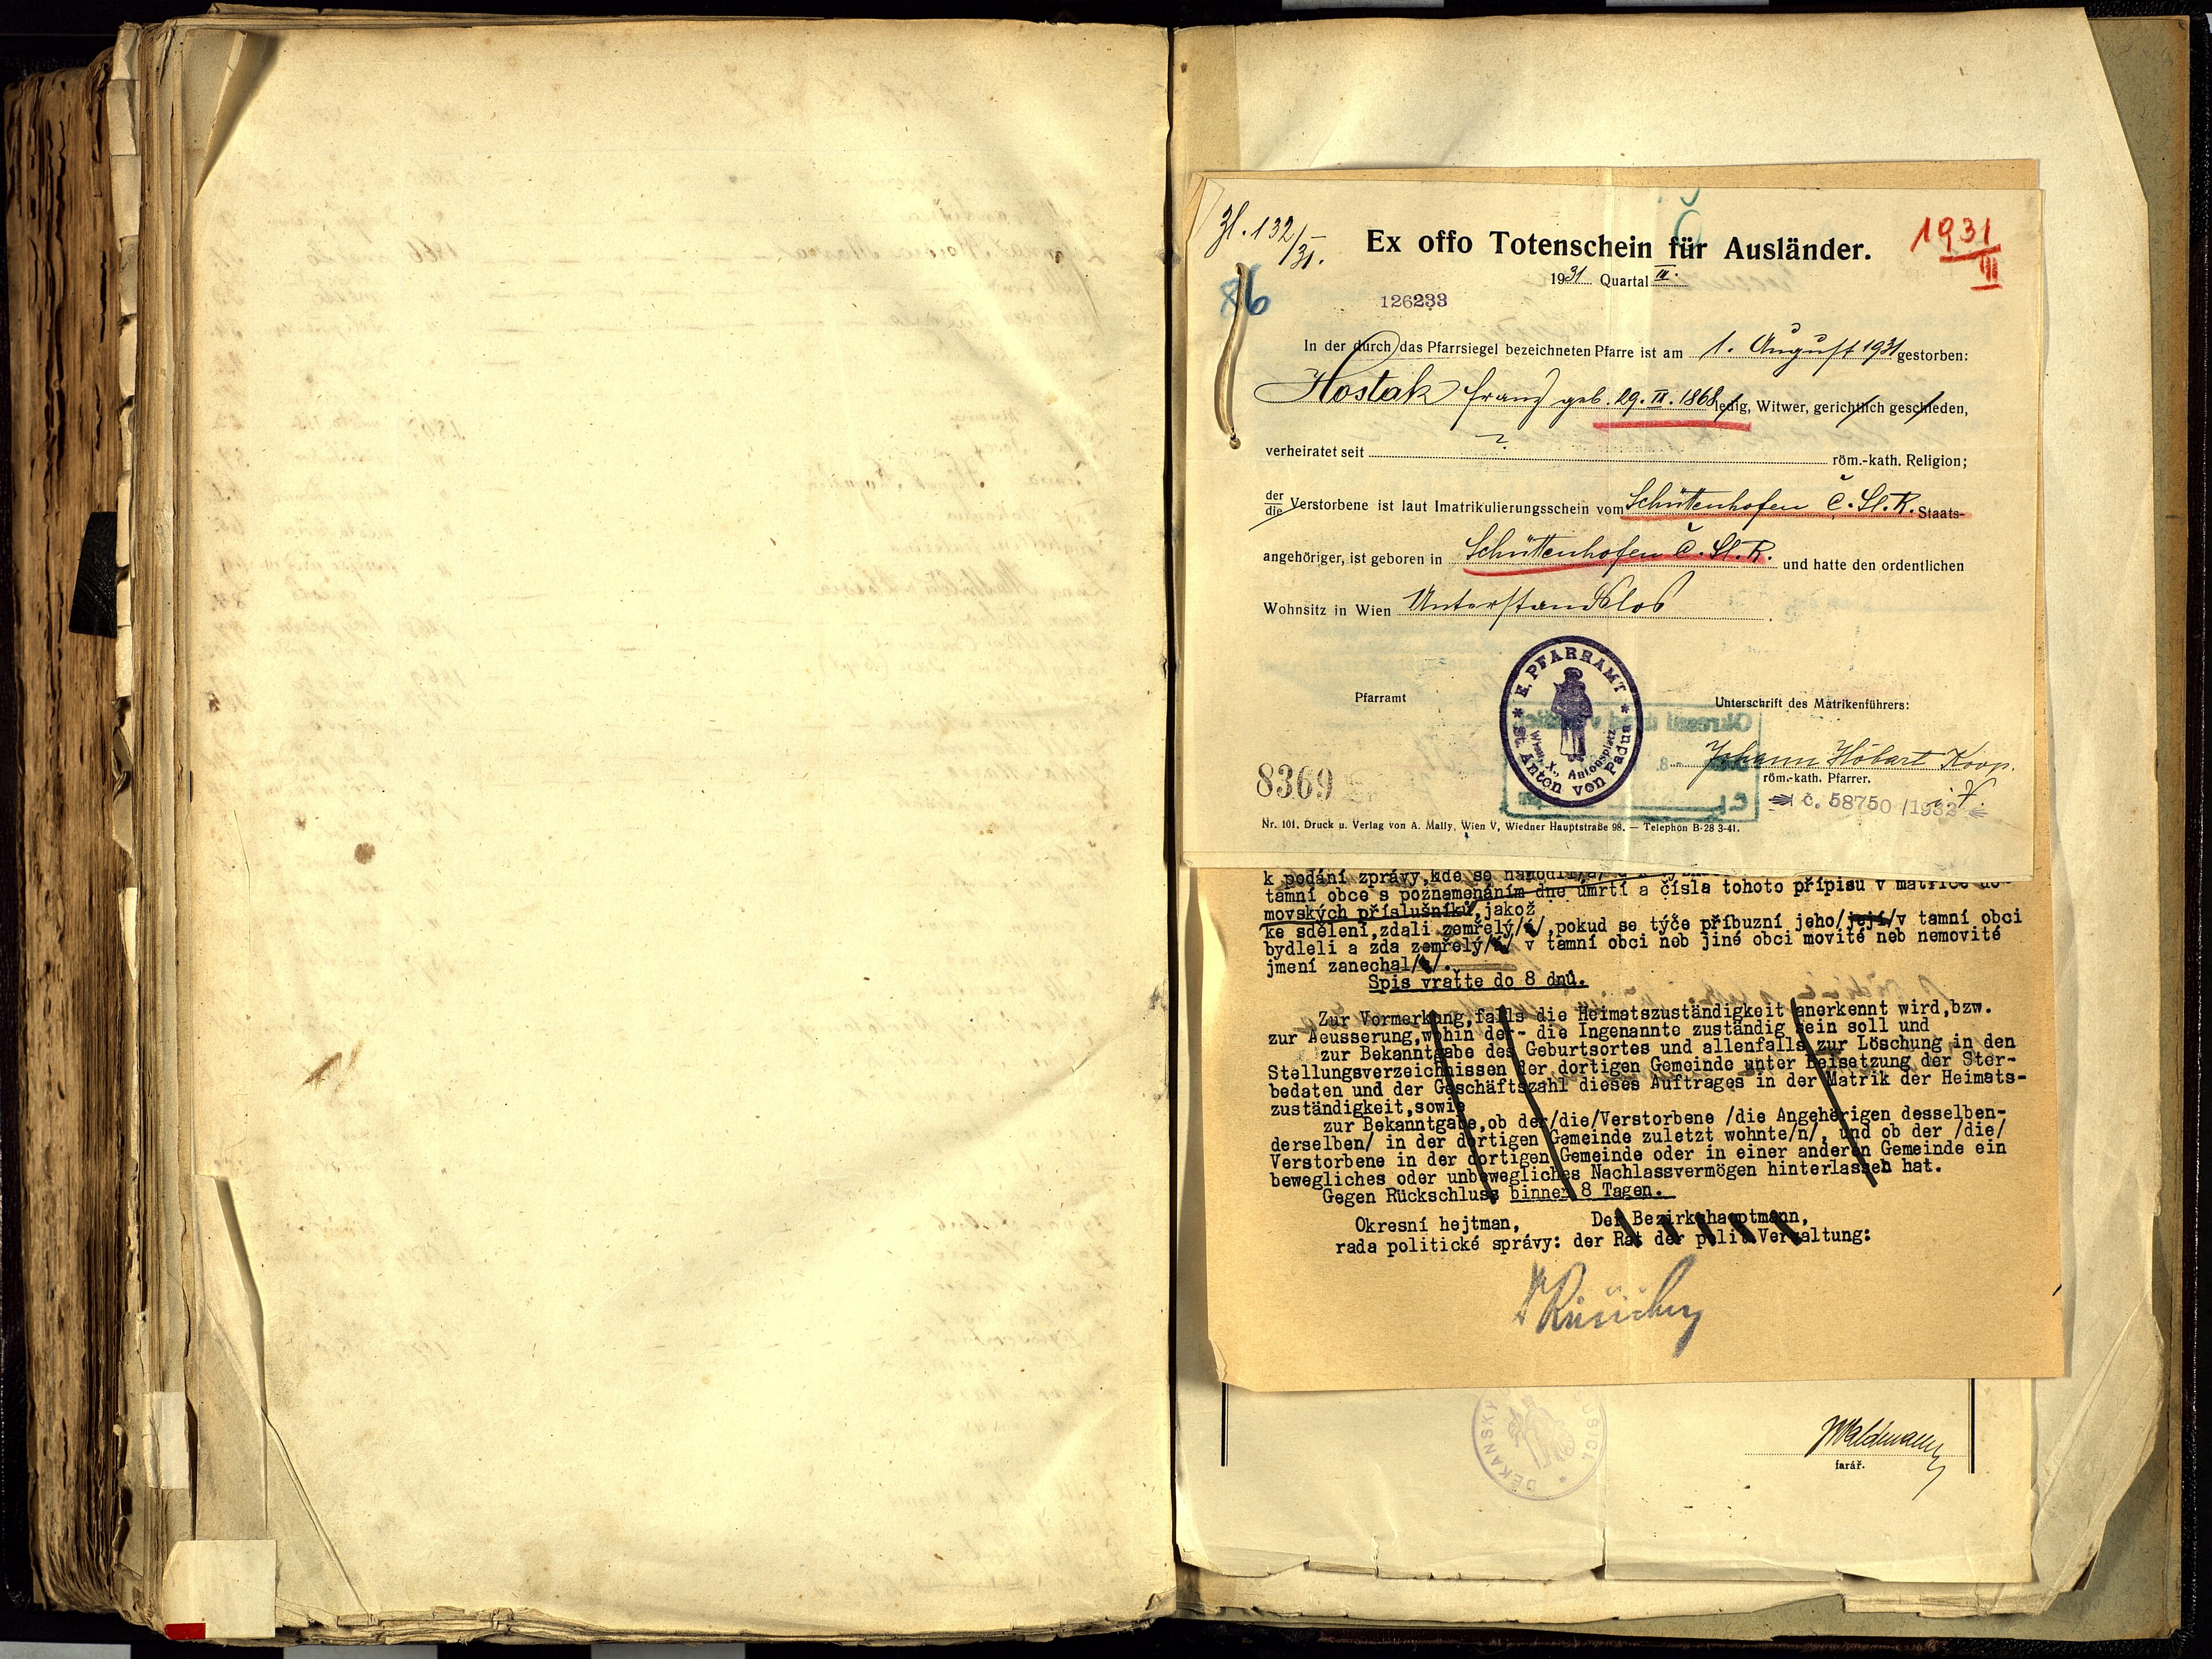 Zl. 132/31.
Ex offo Totenschein für Ausländer.
1931
III
1931 Quartal III.
86
126233
In der durch das Pfarrsiegel bezeichneten Pfarre ist am 1. August 1931 gestorben:
Hostak Franz geb. 29. IX. 1868 ledig, Witwer, gerichtlich geschieden,
verheiratet seit ? röm.-kath. Religion;
der
die Verstorbene ist laut Imatrikulierungsschein vom Schüttenhofen Č. Sl. R. Staats-
angehöriger, ist geboren in Schüttenhofen Č. Sl. R. und hatte den ordentlichen
Wohnsitz in Wien Unterstandslos.
Pfarramt
PFARRAMT * St. Anton von Padua *
Wien, X., Antonsplatz
Unterschrift des Matrikenführers:
Johann Höbart Koop.
röm.-kath. Pfarrer.
8369
č. 58750/1932
Nr. 101. Druck u. Verlag von A. Mally, Wien V, Wiedner Hauptstraße 98. — Telephon B-28 3-41.
k podání zprávy, kde se
tamní obce s poznamenáním dne úmrtí a čísla tohoto přípisu v matrice do-
movských příslušníků, jakož
ke sdělení, zdali zemřelý/á/, pokud se týče příbuzní jeho/její/v tamní obci
bydleli a zda zemřelý/á/ v tamní obci neb jiné obci movité neb nemovité
jmení zanechal/a/.
Spis vraťte do 8 dnů.
Zur Vormerkung, falls die Heimatszuständigkeit anerkennt wird, bzw.
zur Aeusserung, wohin der- die Ingenannte zuständig sein soll und
zur Bekanntgabe des Geburtsortes und allenfalls zur Löschung in den
Stellungsverzeichnissen der dortigen Gemeinde unter Beisetzung der Ster-
bedaten und der Geschäftszahl dieses Auftrages in der Matrik der Heimats-
zuständigkeit, sowie
zur Bekanntgabe, ob der/die/Verstorbene /die Angehörigen desselben-
derselben/ in der dortigen Gemeinde zuletzt wohnte/n/, und ob der /die/
Verstorbene in der dortigen Gemeinde oder in einer anderen Gemeinde ein
bewegliches oder unbewegliches Nachlassvermögen hinterlassen hat.
Gegen Rückschluss binnen 8 Tagen.
Okresní hejtman, Der Bezirkshauptmann,
rada politické správy: der Rat der polit.Verwaltung:
DĚKANSKÝ
Waldmann
farář.